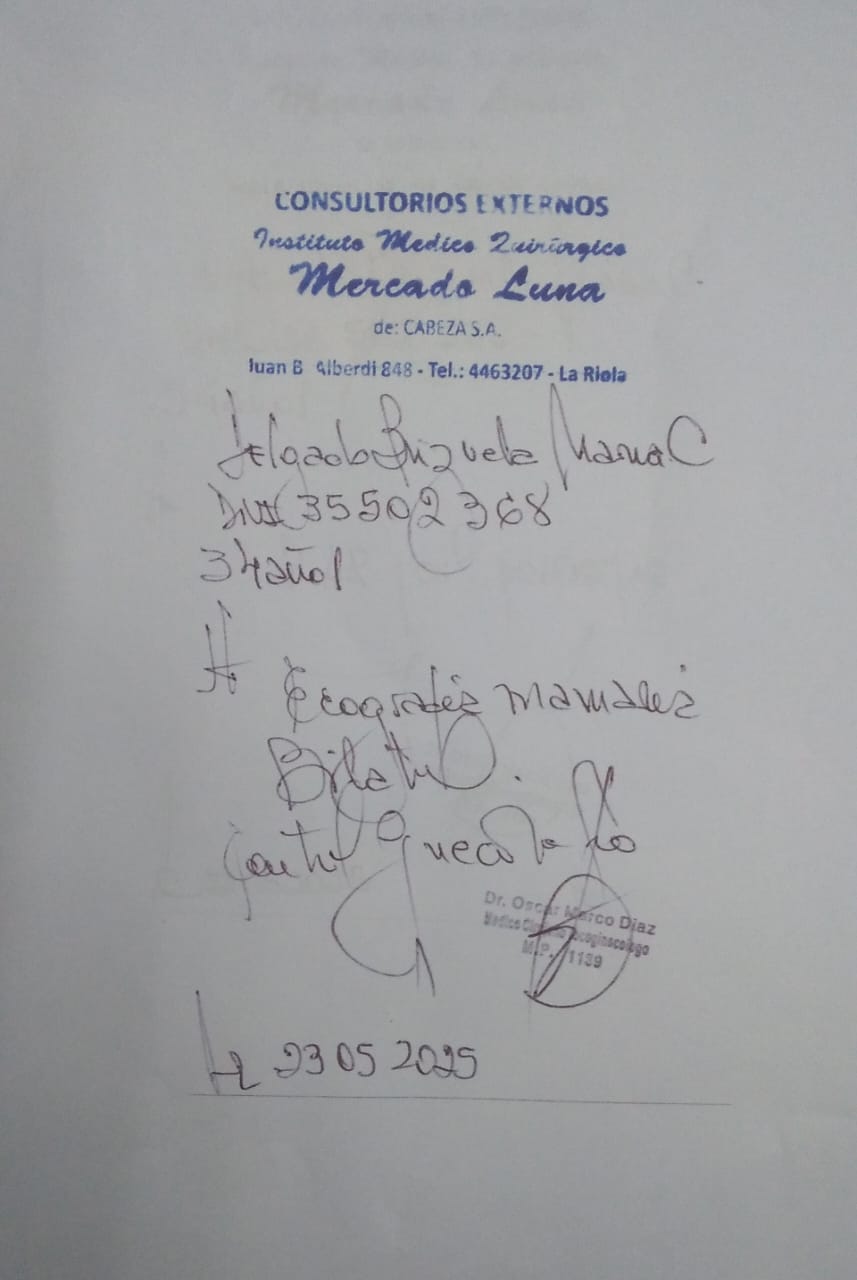 CONSULTORIOS EXTERNOS
Instituto Medico Quirúrgico
Mercado Luna
de: CABEZA S.A.
Juan B Alberdi 848 - Tel.: 4463207 - La Rioja
Delgado Brizuela Maria C
DNI 35502368
34 años
Ecografía mamaria
Bilateral.
Control
Dr. Oscar Marco Diaz
Medico Oncoginecologo
M.P. 1139
LR 23 05 2025